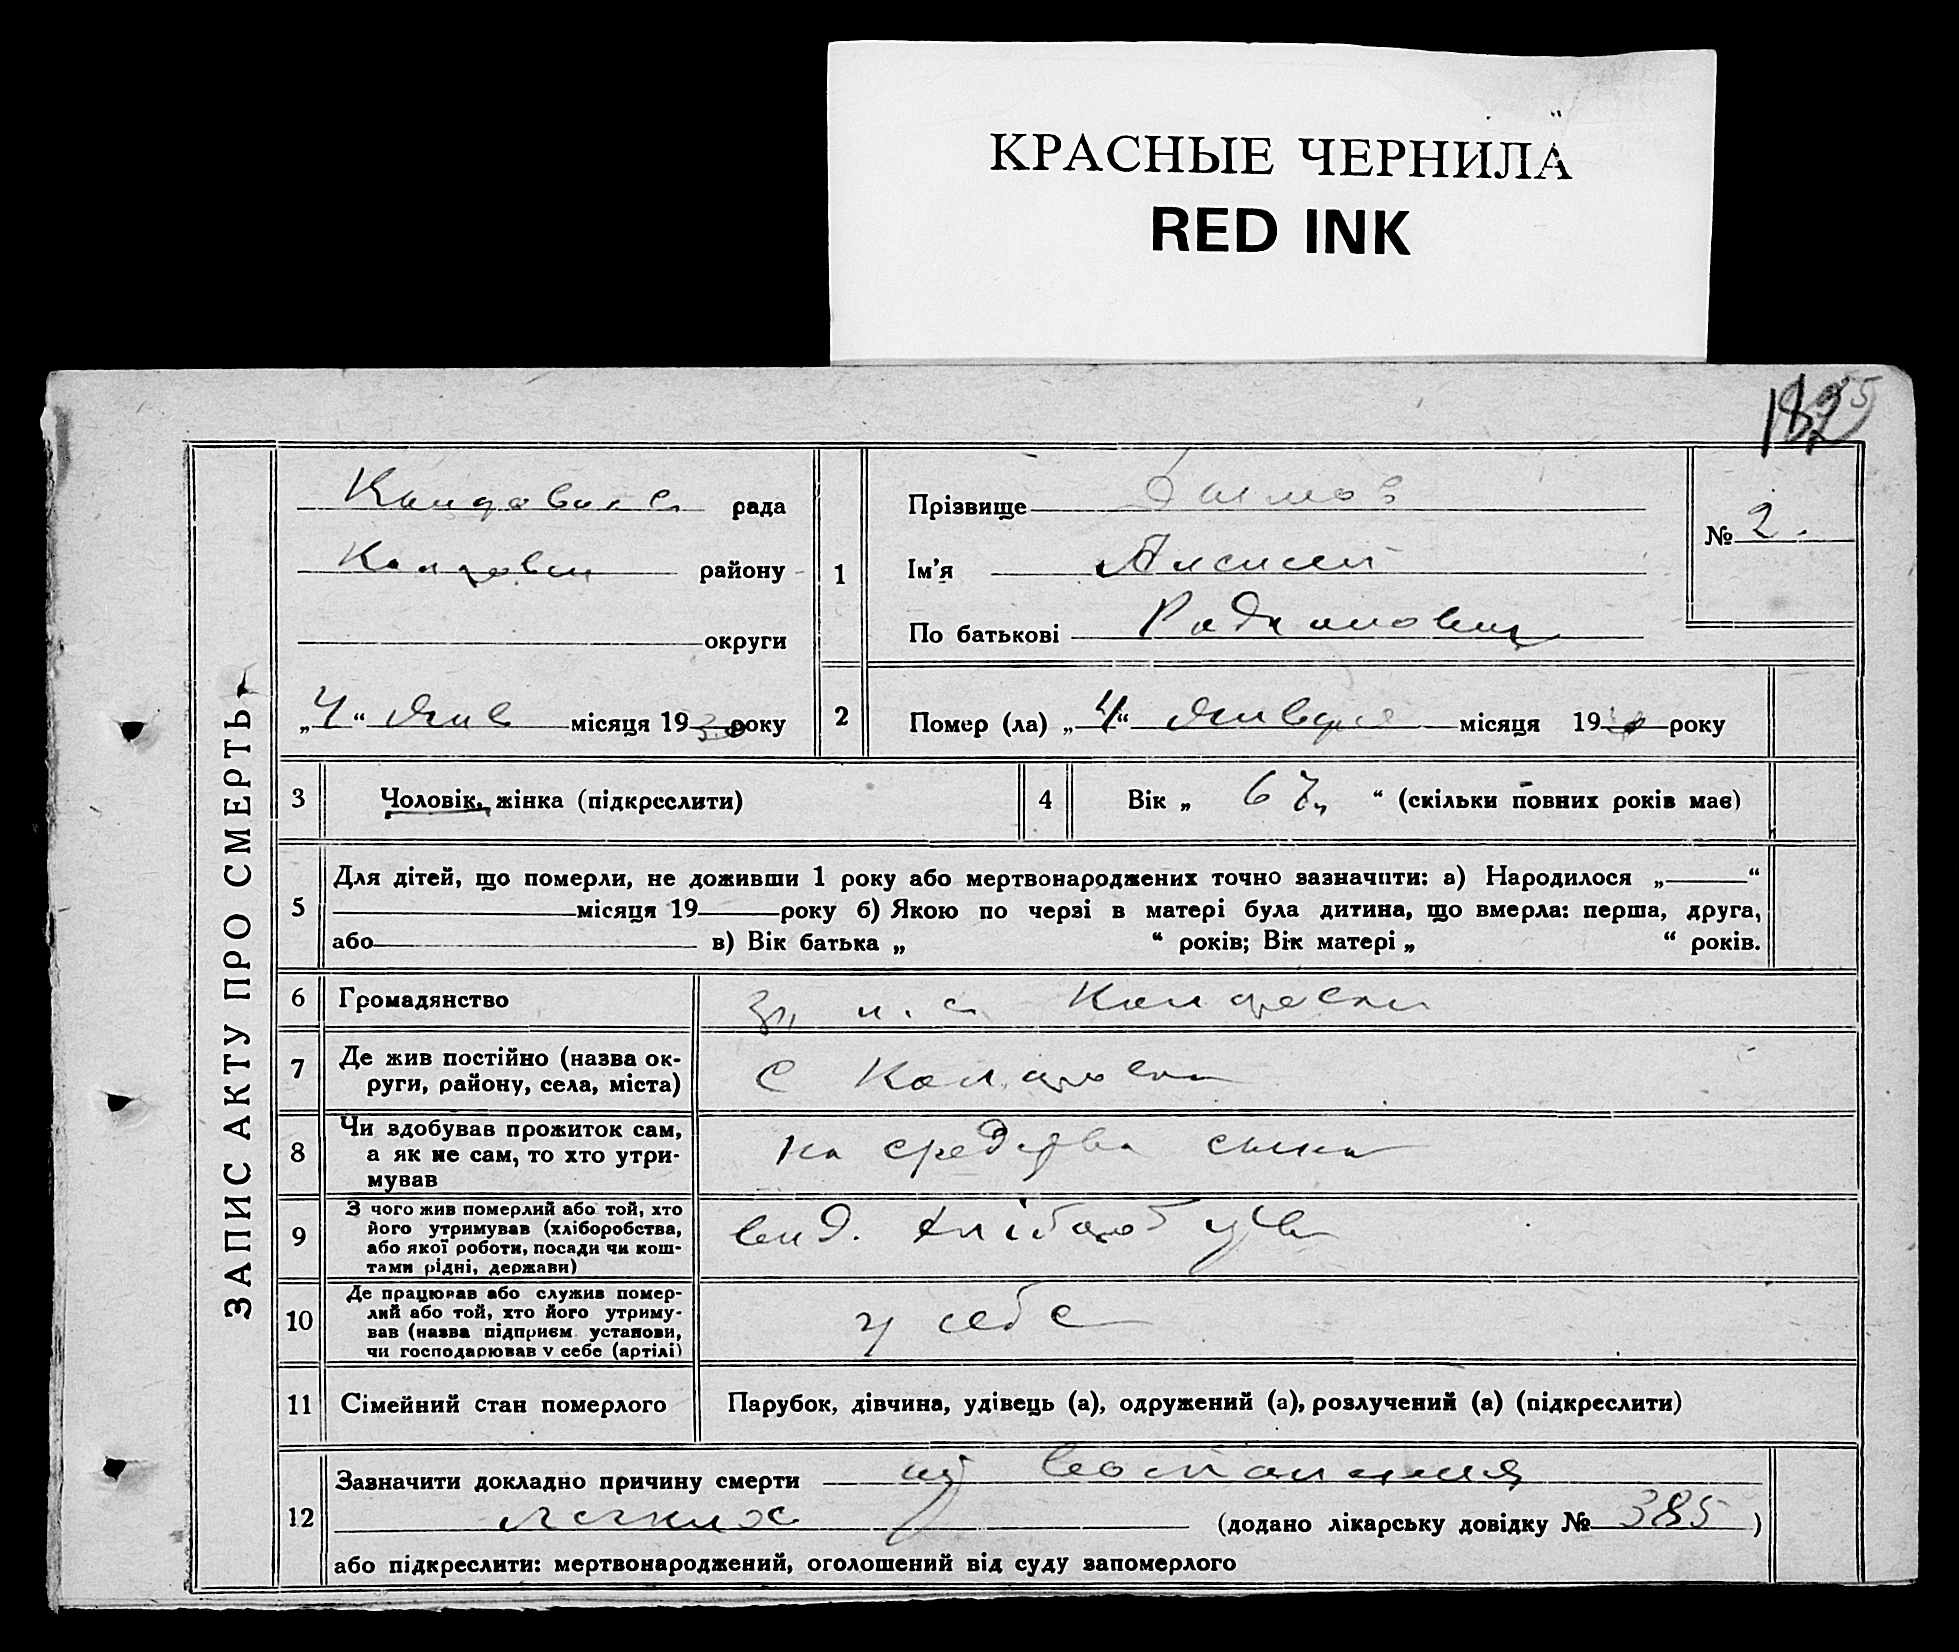 КРАСНЫЕ ЧЕРНИЛА
RED INK
ЗАПИС АКТУ ПРО СМЕРТЬ
рада
району
округи
„4“ Янв місяця 1930 року
1
Прізвище
Ім’я Алексей
По батькові Родионович
№ 2.
2
Помер (ла) „4“ Января місяця 1930 року
3
Чоловік, жінка (підкреслити)
4
Вік „ 67 “ (скільки повних років має)
5
Для дітей, що померли, не доживши 1 року або мертвонароджених точно зазначити: а) Народилося „ “
місяця 19 року б) Якою по черзі в матері була дитина, що вмерла: перша, друга,
або в) Вік батька „ “ років; Вік матері „ “ років.
6
Громадянство
7
Де жив постійно (назва ок-
руги, району, села, міста)
с
8
Чи здобував прожиток сам,
а як не сам, то хто утри-
мував
на средства сына
9
З чого жив померлий або той, хто
його утримував (хліборобства,
або якої роботи, посади чи кош-
тами рідні, держави)
10
Де працював або служив помер-
лий або той, хто його утриму-
вав (назва підприєм. установи,
чи господарював у себе (артілі)
у себе
11
Сімейний стан померлого
Парубок, дівчина, удівець (а), одружений (а), розлучений (а) (підкреслити)
12
Зазначити докладно причину смерти воспаления
легких (додано лікарську довідку № 385)
або підкреслити: мертвонароджений, оголошений від суду запомерлого